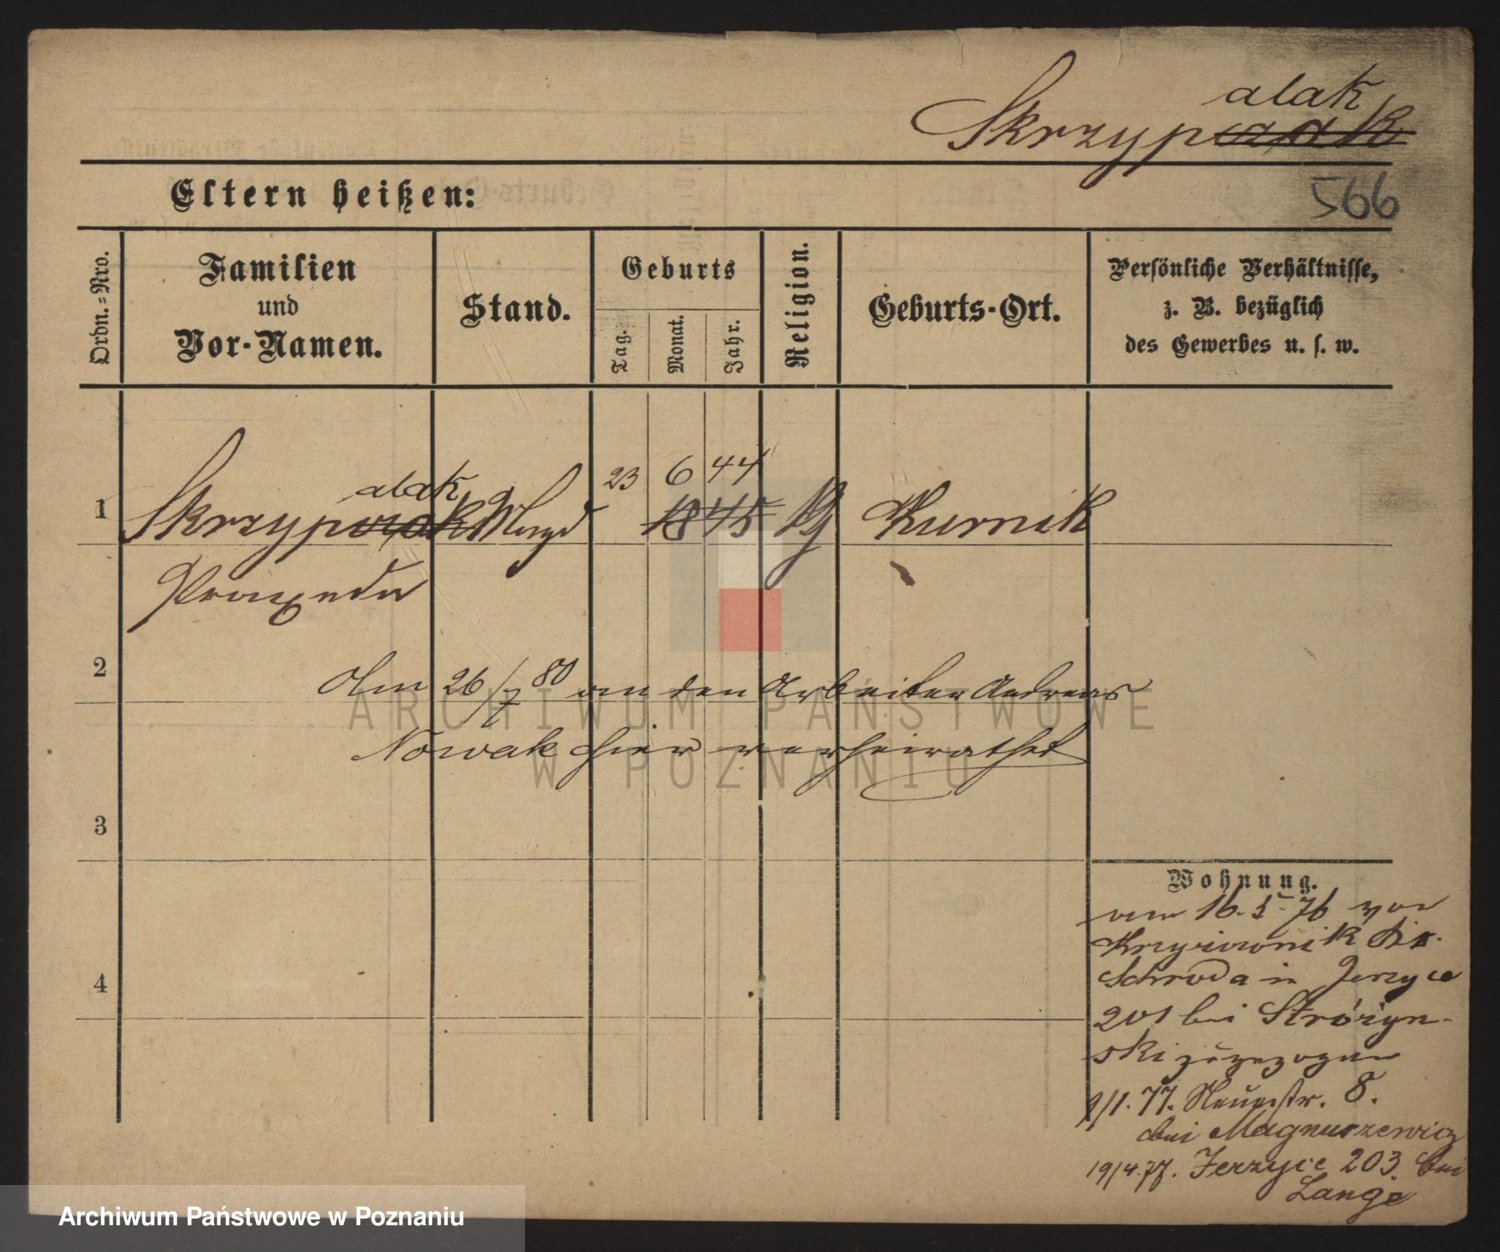 alak
Skrzypczak
566
Eltern heißen:
Ordn.-Nro.
Familien
und
Vor-Namen.
Stand.
Geburts
Tag.
Monat.
Jahr.
Religion.
Geburts-Ort.
Persönliche Verhältnisse,
z. B. bezüglich
des Gewerbes u. s. w.
alak 23 6 44
1 Skrzypczak Magd 18 45 Kurnik
Praxeda
2
Am 26/7 80 an den Arbeiter Andreas
Nowak hier verheirathet
3
4
Wohnung.
am 16.5.76 von
Krzyzownik Kr.
Schroda in Jerzyce
201 bei Strózyn-
ski zugezogen
9/1.77. Neuestr. 8.
bei Magnuszewicz
19/4.77. Jerzyce 203 bei
Lange
ARCHIWUM PAŃSTWOWE
W POZNANIU
Archiwum Państwowe w Poznaniu